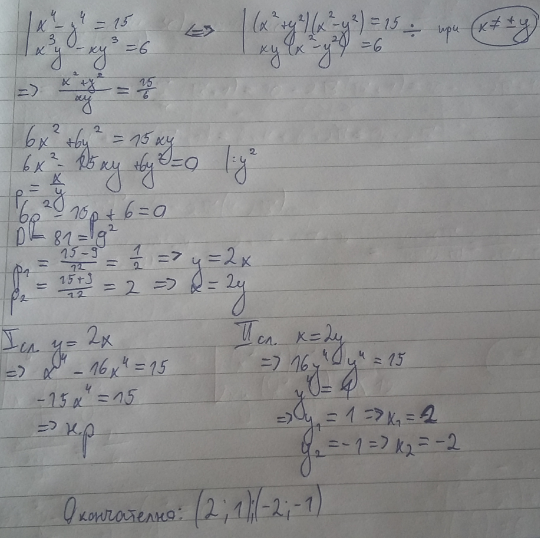 x⁴ - y⁴ = 15 <=> (x²+y²)(x²-y²) = 15 ÷ при x ≠ ±y
x³y - xy³ = 6 xy(x²-y²) = 6
=> (x²+y²)/xy = 15/6
6x² + 6y² = 15xy
6x² - 15xy + 6y² = 0 |:y²
p = x/y
6p² - 15p + 6 = 0
D = 81 = 9²
p₁ = (15-9)/12 = 1/2 => y = 2x
p₂ = (15+9)/12 = 2 => x = 2y
I сл. y = 2x
=> x⁴ - 16x⁴ = 15
-15x⁴ = 15
=> н.р
II сл. x = 2y
=> 16y⁴ - y⁴ = 15
y⁴ = 1
=> y₁ = 1 => x₁ = 2
y₂ = -1 => x₂ = -2
Окончателно: (2; 1);(-2; -1)